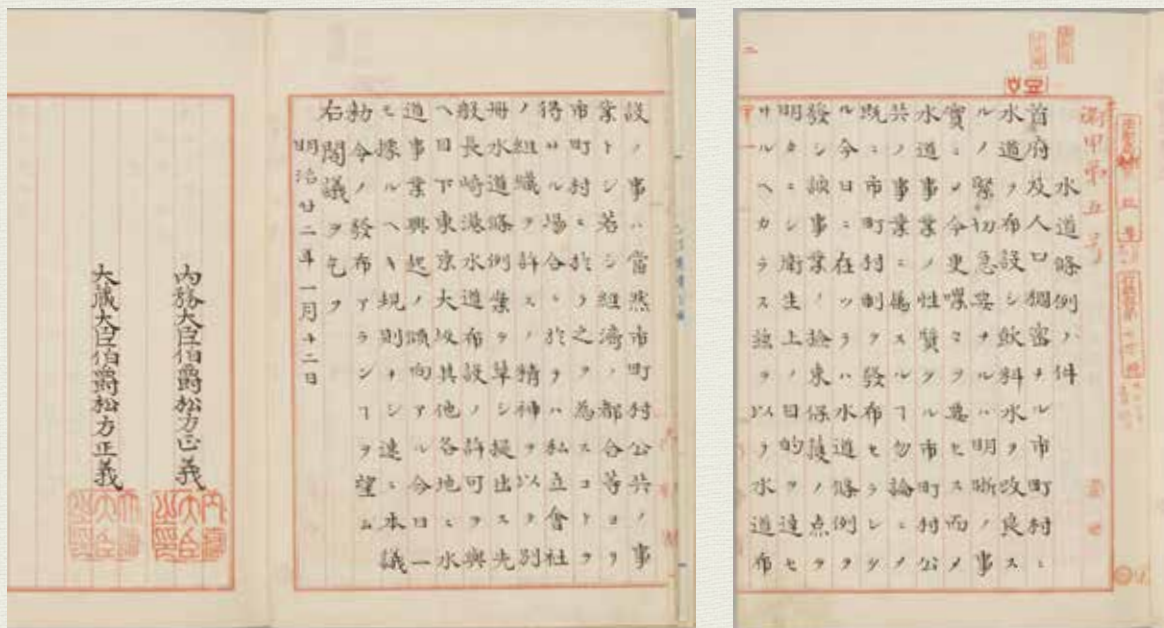 甲第五号
水道條例ノ件
首府及人口稠密ナル市町村ニ
水道ヲ布設シ飲料水ヲ改良ス
ルノ緊切急要ナルハ明晰ノ事
實ニメ今更喋々ヲ要セス而メ
水道事業ノ性質タル市町村公
共ノ事業ニ属スルヿ勿論ニメ
既ニ市町村制ヲ發布セラレタ
ル今日ニ在ツテハ水道條例ヲ
發シ該事業ノ撿束保護ノ点ヲ
明カニシ衛生上ノ目的ヲ達セ
サルヘカラス ヲ以テ水道布
設ノ事ハ當然市町村公共ノ事
業トシ若シ経済ノ都合等ヨリ
市町村ニ於テ之ヲ為スコトヲ
得サル場合ニ於テハ私立會社
ノ組織ヲ許スノ精神ヲ以テ別
冊水道條例案ヲ草シ提出ス先
般長崎港水道布設ノ許可ヲ與
ヘ目下東京大坂其他各地ニ水
道事業興起ノ傾向アル今日一
モ據ルヘキ規則ナシ速ニ本議
勅令ノ發布アランヿヲ望ム
右閣議ヲ乞フ
明治廿二年一月十二日
内務大臣伯爵松方正義
内務大臣之印
大蔵大臣伯爵松方正義
大蔵大臣之印